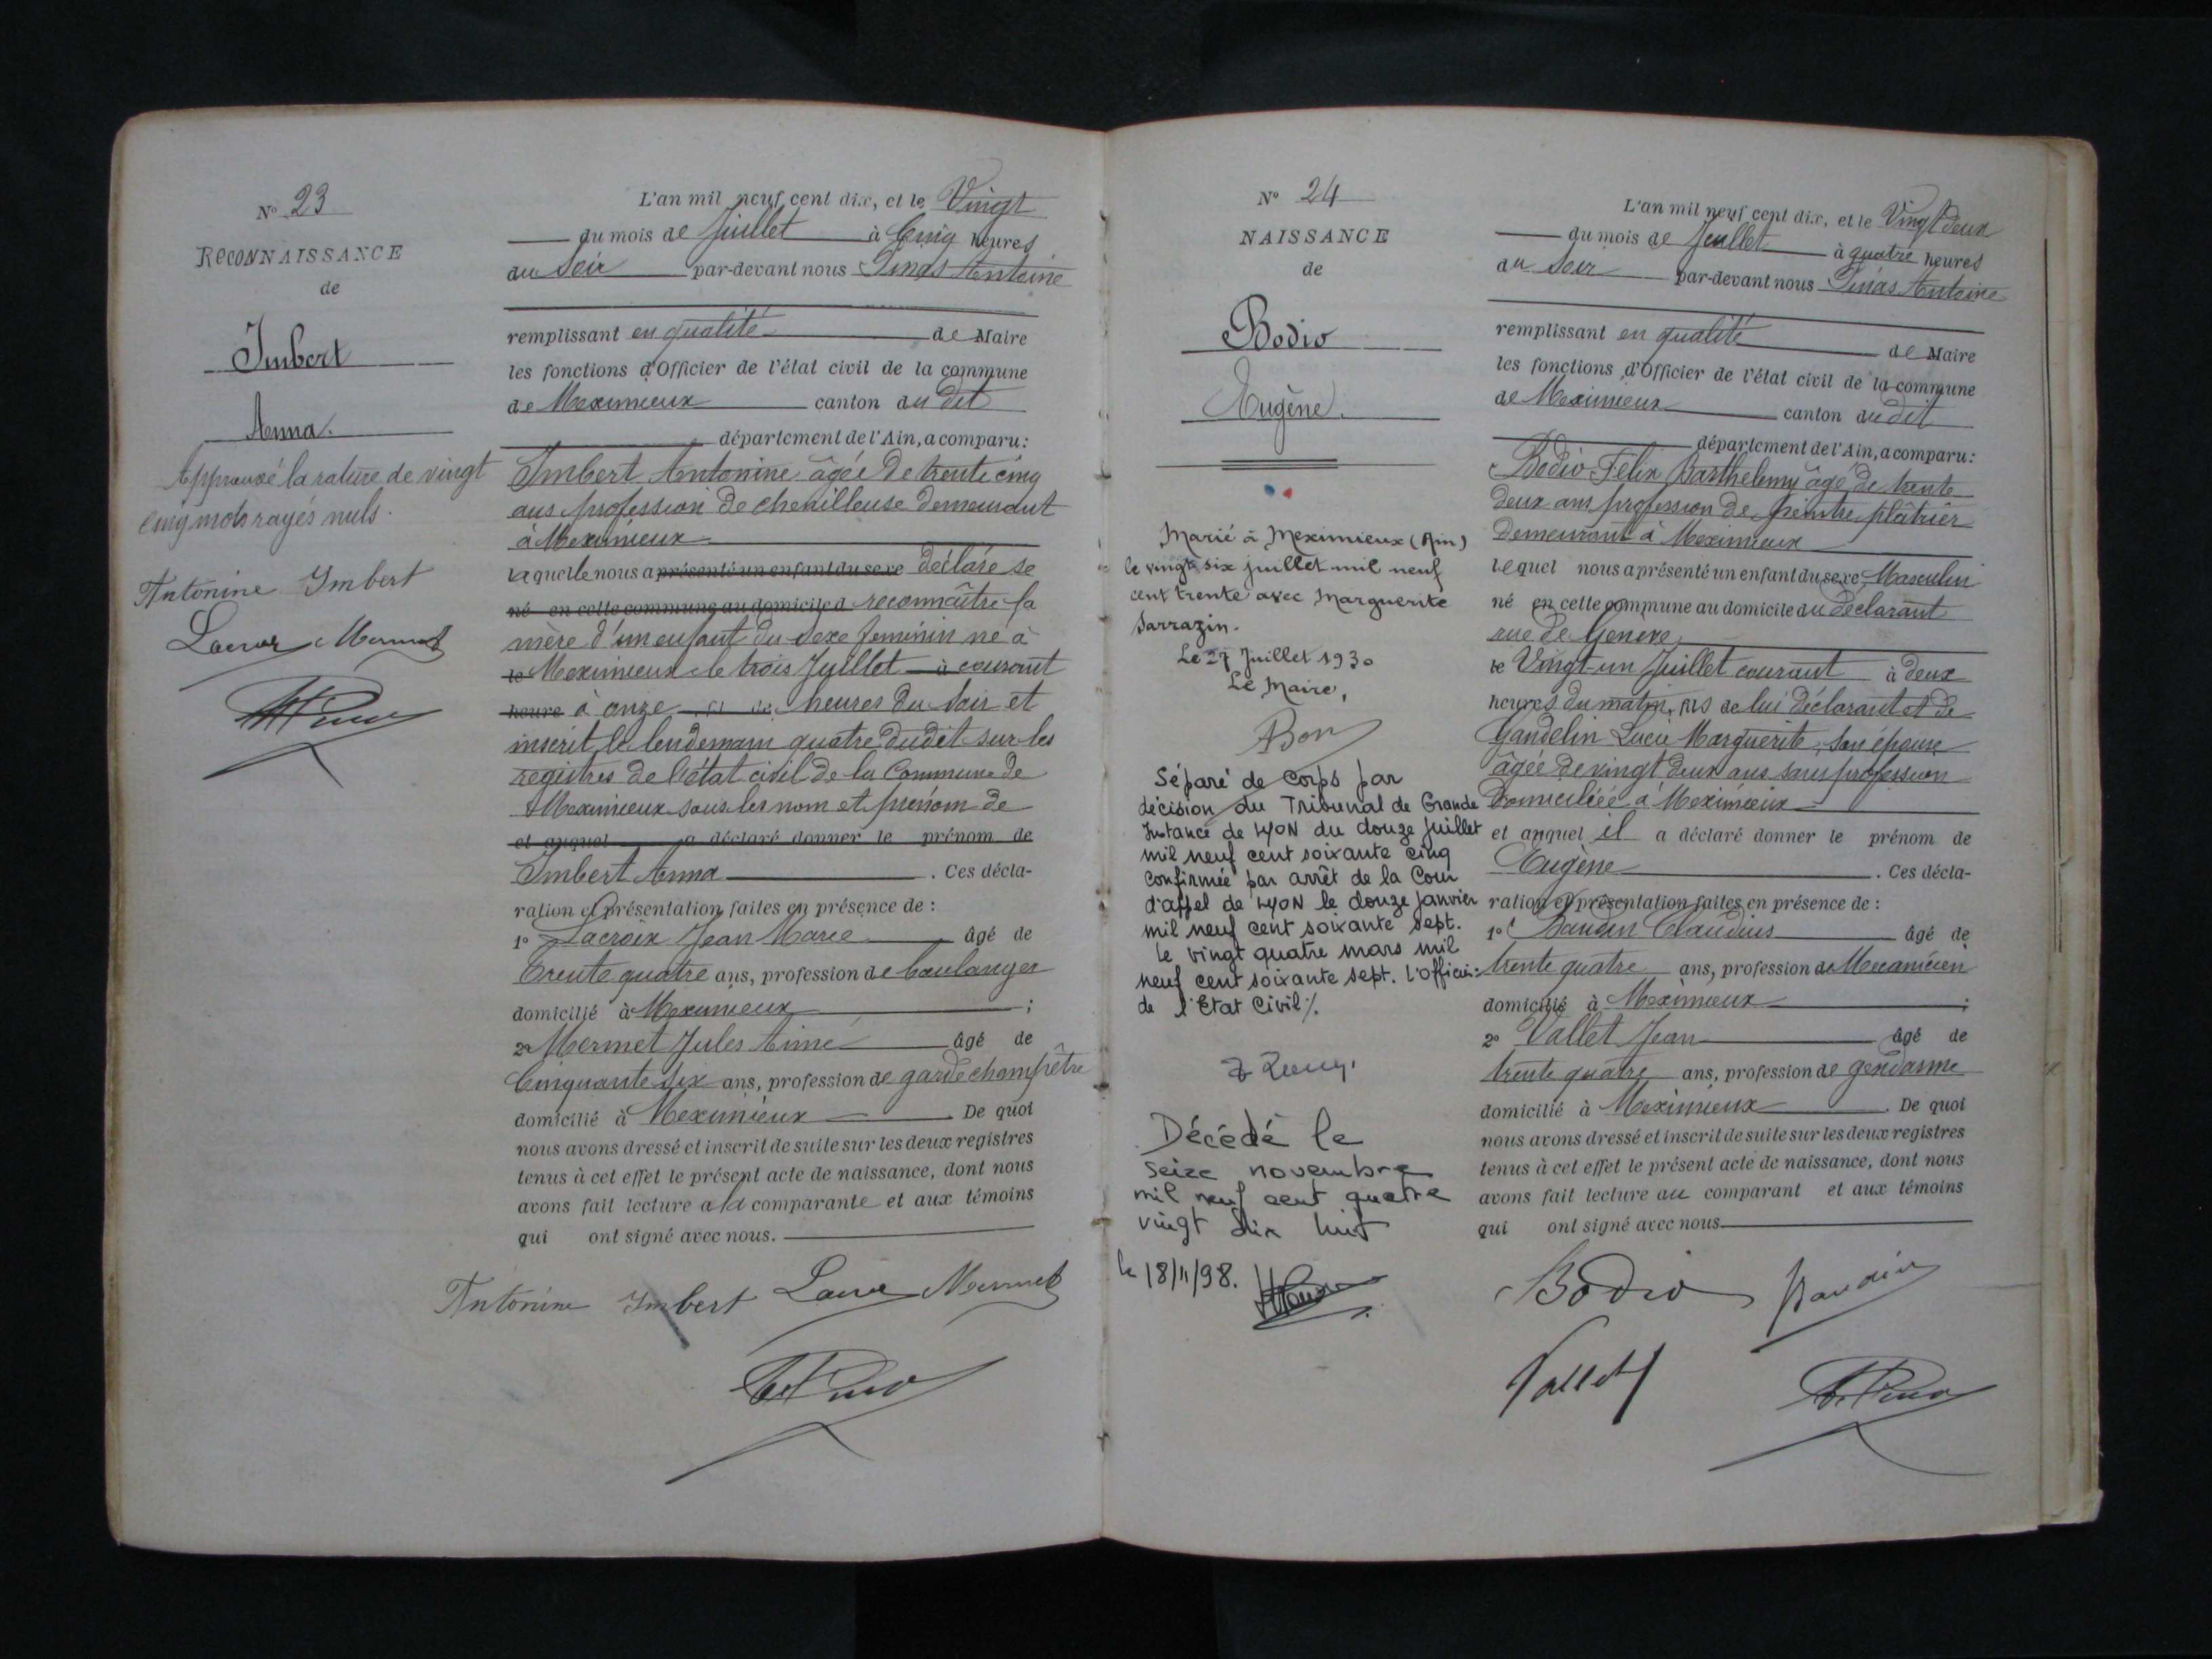 N° 23
RECONNAISSANCE
de
Imbert
Anna.
Approuvé la rature de vingt
cinq mots rayés nuls.
Antonine Imbert
Mermet
L'an mil neuf cent dix, et le Vingt
du mois de Juillet à Cinq heures
du Soir par-devant nous Pinas Antoine
remplissant en qualité de Maire
les fonctions d'Officier de l'état civil de la commune
de Meximieux canton du dit
département de l'Ain, a comparu :
Imbert Antonine âgée de trente cinq
ans profession de chenilleuse demeurant
à Meximieux
laquelle nous a présenté un enfant du sexe déclaré se
né en cette commune au domicile d reconnaître la
mère d'un enfant du sexe féminin né à
le Meximieux le trois Juillet à courant
heure à onze heures du soir et
inscrit le lendemain quatre dudit sur les
registres de l'état civil de la Commune de
Meximieux sous les nom et prénom de
et auquel a déclaré donner le prénom de
Imbert Anna. Ces décla-
ration et présentation faites en présence de :
1° Lacroix Jean Marie âgé de
trente quatre ans, profession de boulanger
domicilié à Meximieux ;
2° Mermet Jules Aimé âgé de
Cinquante six ans, profession de garde champêtre
domicilié à Meximieux. De quoi
nous avons dressé et inscrit de suite sur les deux registres
tenus à cet effet le présent acte de naissance, dont nous
avons fait lecture a la comparante et aux témoins
qui ont signé avec nous.
Antonine Imbert Mermet
N° 24
NAISSANCE
de
Bodio
Eugène.
Marié à Meximieux (Ain)
le vingt six juillet mil neuf
cent trente avec Marguerite
Sarrazin.
Le 27 Juillet 1930
Le Maire,
Séparé de Corps par
décision du Tribunal de Grande
Instance de LYON du douze Juillet
mil neuf cent soixante cinq
confirmée par arrêt de la Cour
d'appel de LYON le douze janvier
mil neuf cent soixante sept.
Le vingt quatre mars mil
neuf cent soixante sept. l'Officier
de l'Etat Civil /.
Décédé le
seize novembre
mil neuf cent quatre
vingt dix huit
le 18/11/98.
L'an mil neuf cent dix, et le Vingt deux
du mois de Juillet à quatre heures
du Soir par-devant nous Pinas Antoine
remplissant en qualité de Maire
les fonctions d'Officier de l'état civil de la commune
de Meximieux canton du dit
département de l'Ain, a comparu :
Bodio Félix Barthélemy âgé de trente
deux ans profession de peintre plâtrier
demeurant à Meximieux
lequel nous a présenté un enfant du sexe Masculin
né en cette commune au domicile du déclarant
rue de Genève
le Vingt-un Juillet courant à deux
heures du matin, fils de lui déclarant et de
Gandelin Lucie Marguerite, son épouse
âgée de vingt deux ans sans profession
domiciliée à Meximieux
et auquel il a déclaré donner le prénom de
Eugène. Ces décla-
ration et présentation faites en présence de :
1° Baudin Claudius âgé de
trente quatre ans, profession de Mecanicien
domicilié à Meximieux ;
2° Vallet Jean âgé de
trente quatre ans, profession de gendarme
domicilié à Meximieux. De quoi
nous avons dressé et inscrit de suite sur les deux registres
tenus à cet effet le présent acte de naissance, dont nous
avons fait lecture au comparant et aux témoins
qui ont signé avec nous
Bodio Baudin
Vallet